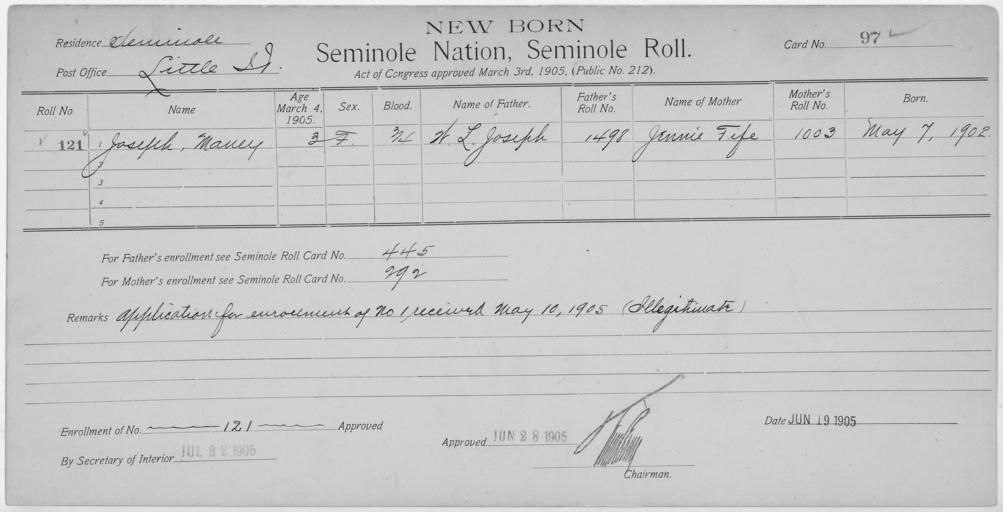 NEW BORN
Seminole Nation, Seminole Roll.
Act of Congress approved March 3rd, 1905, (Public No. 212).
Residence Seminole
Post Office Little I.T.
Card No. 97
Roll No Name Age March 4, 1905. Sex. Blood. Name of Father. Father's Roll No. Name of Mother Mother's Roll No. Born.
121 1 Joseph, Maney 3 F. 3/4 W. L. Joseph 1498 Jennie Fife 1003 May 7, 1902.
2
3
4
5
For Father's enrollment see Seminole Roll Card No. 445
For Mother's enrollment see Seminole Roll Card No. 292
Remarks Application for enrollment of No 1, received May 10, 1905 (Illegitimate)
Enrollment of No. 121 Approved
By Secretary of Interior JUL 22 1905
Approved JUN 28 1905
Chairman.
Date JUN 19 1905